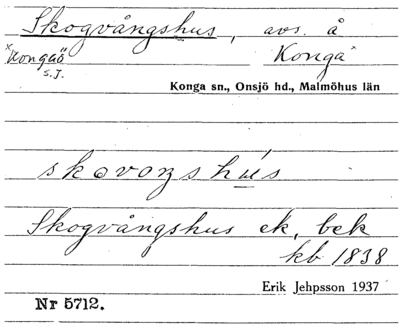 Skogvångshus, avs. å
×Kongaö Konga
s.J.
Konga sn., Onsjö hd., Malmöhus län
skovoŋshús
Skogvångshus ek, bek
kb 1838
Erik Jehpsson 1937
Nr 5712.